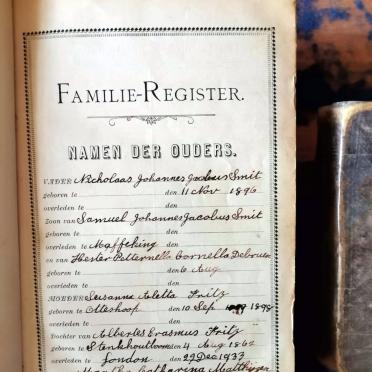 FAMILIE-REGISTER.
NAMEN DER OUDERS.
VADER Nicholaas Johannes Jacobus Smit
geboren te den 11 Nov 1896
overleden te den
Zoon van Samuel Johannes Jacobus Smit
geboren te den
overleden te Maffeking den
en van Hester Petternella Cornella Debruin
geboren te den 6 Aug
overleden te den
MOEDER Susanna Aletta Fritz
geboren te Olleshoop den 10 Sep 1898
overleden te den
Dochter van Albertes Erasmus Fritz
geboren te Stenkhoutboom den 4 Aug 1862
overleden te London den 29 Dec 1933
Catharina